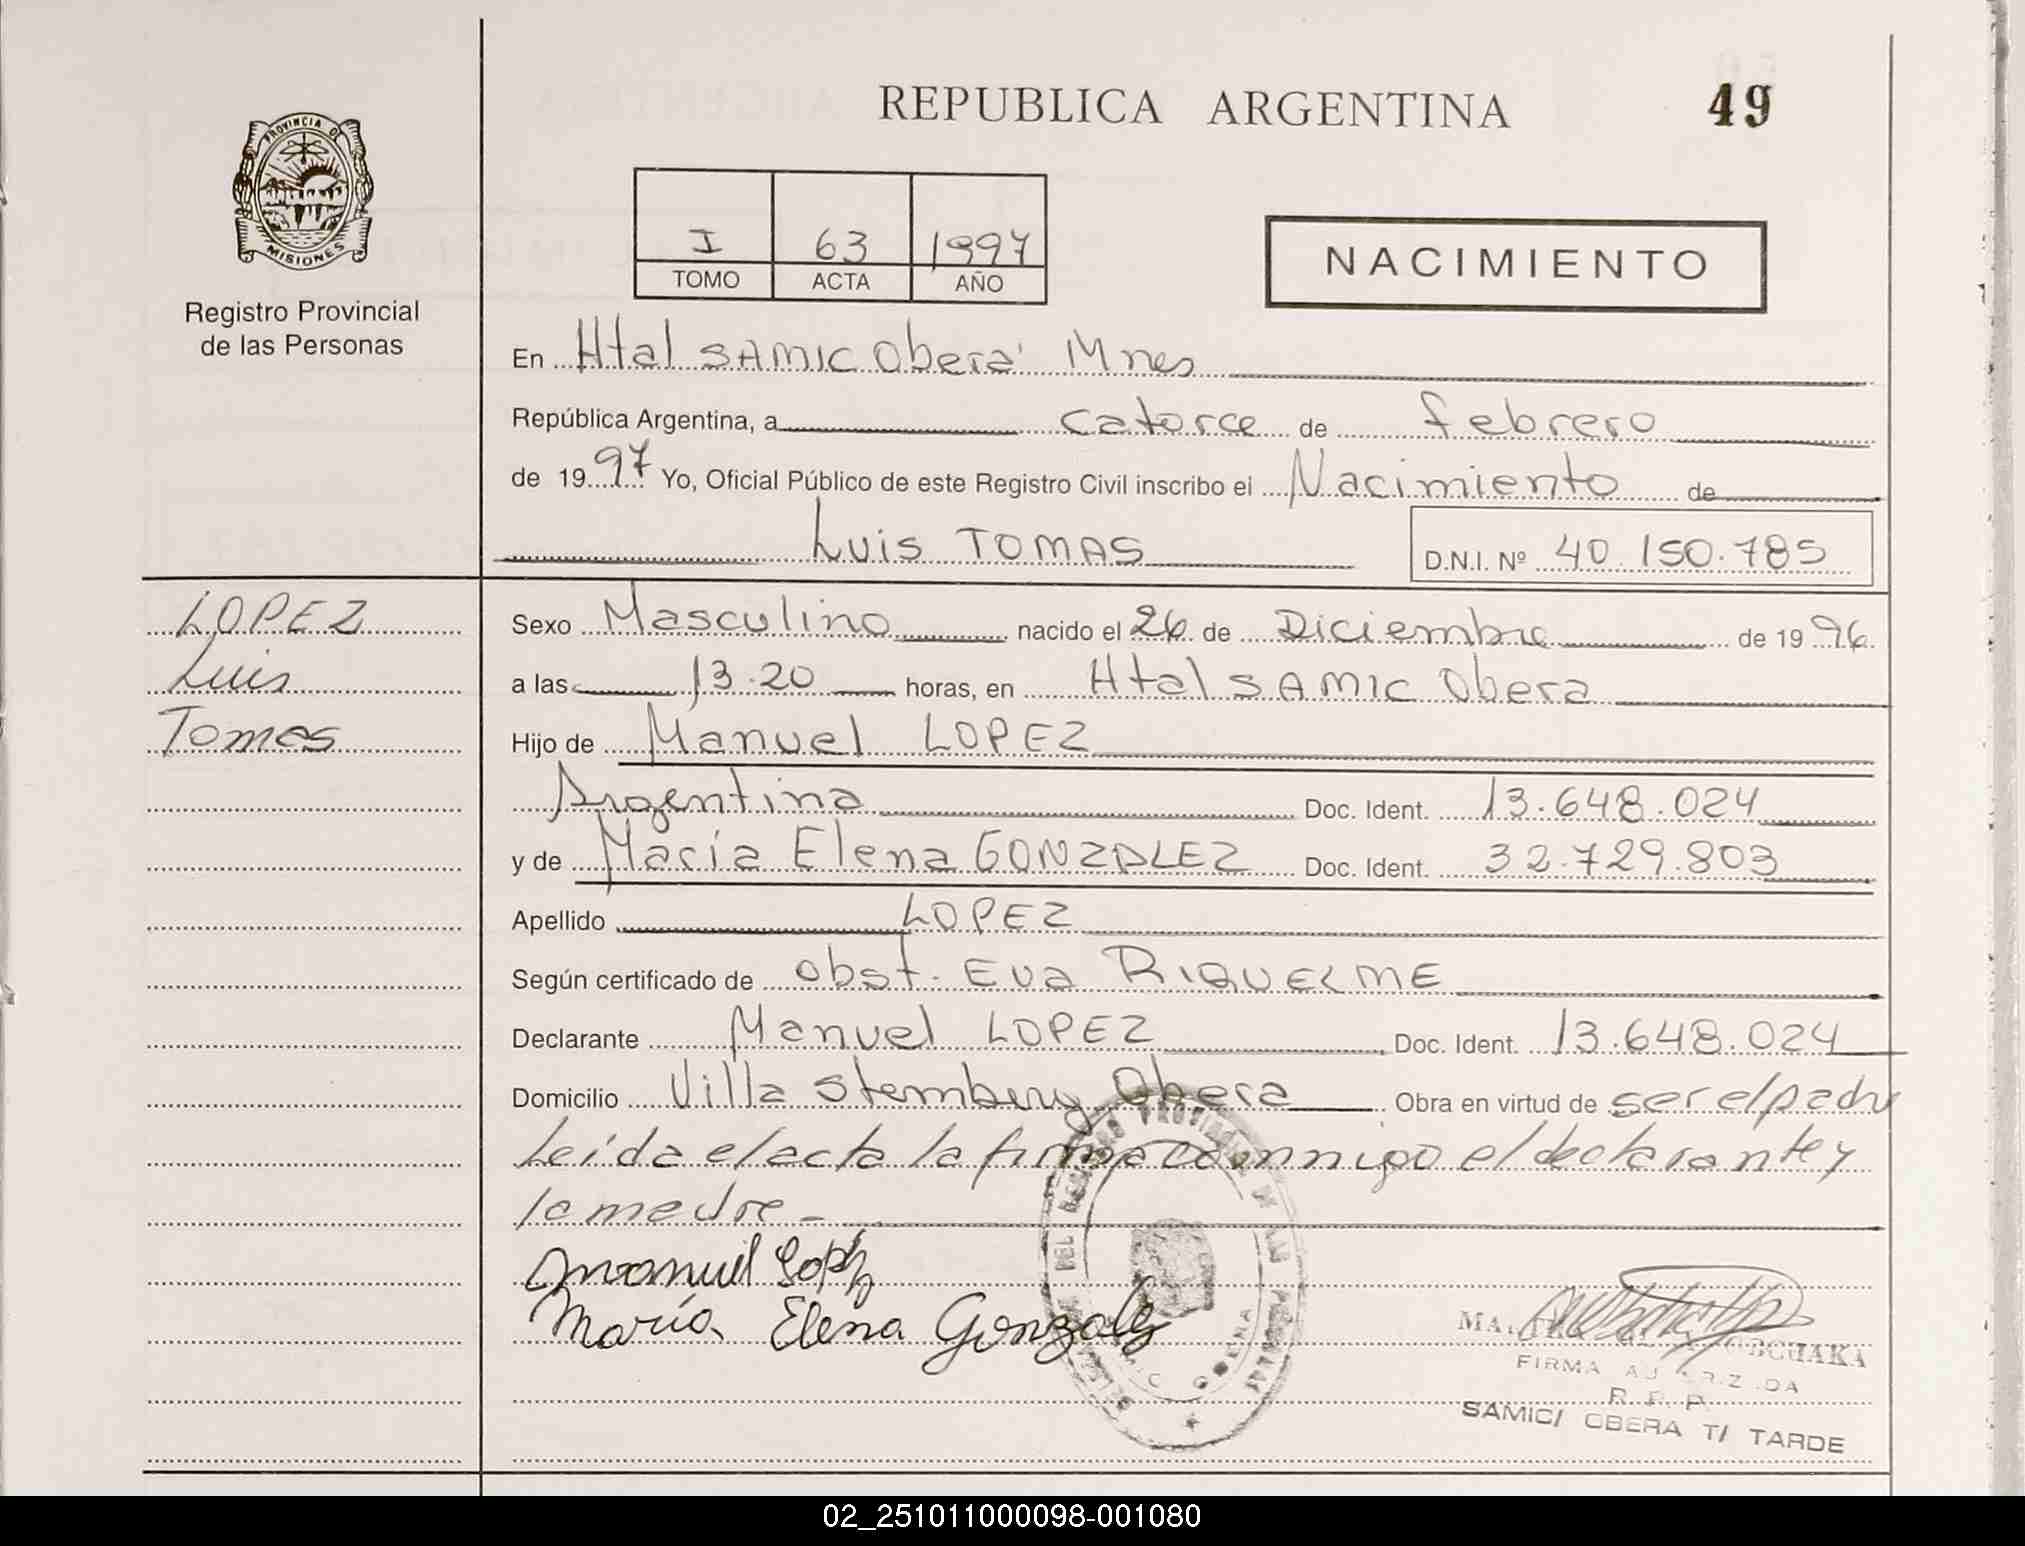 REPUBLICA ARGENTINA
49
PROVINCIA DE
MISIONES
Registro Provincial
de las Personas
I 63 1997
TOMO ACTA AÑO
NACIMIENTO
En Htal SAMIC Oberá Mnes
República Argentina, a catorce de febrero
de 1997 Yo, Oficial Público de este Registro Civil inscribo el Nacimiento de
Luis TOMAS D.N.I. Nº 40.150.785
LOPEZ
Luis
Tomas
Sexo Masculino nacido el 26 de Diciembre de 1996
a las 13.20 horas, en Htal SAMIC Obera
Hijo de Manuel LOPEZ
Argentina Doc. Ident. 13.648.024
y de María Elena GONZALEZ Doc. Ident. 32.729.803
Apellido LOPEZ
Según certificado de Obst. Eva RIQUELME
Declarante Manuel LOPEZ Doc. Ident. 13.648.024
Domicilio Villa Stemberg Obera Obra en virtud de ser el padre
Leída el acta la firma conmigo el declarante y
la madre -
Manuel Lopez
María Elena Gonzalez
FIRMA AUTORIZADA
R. P. P.
SAMIC/ OBERA T/ TARDE
02_251011000098-001080